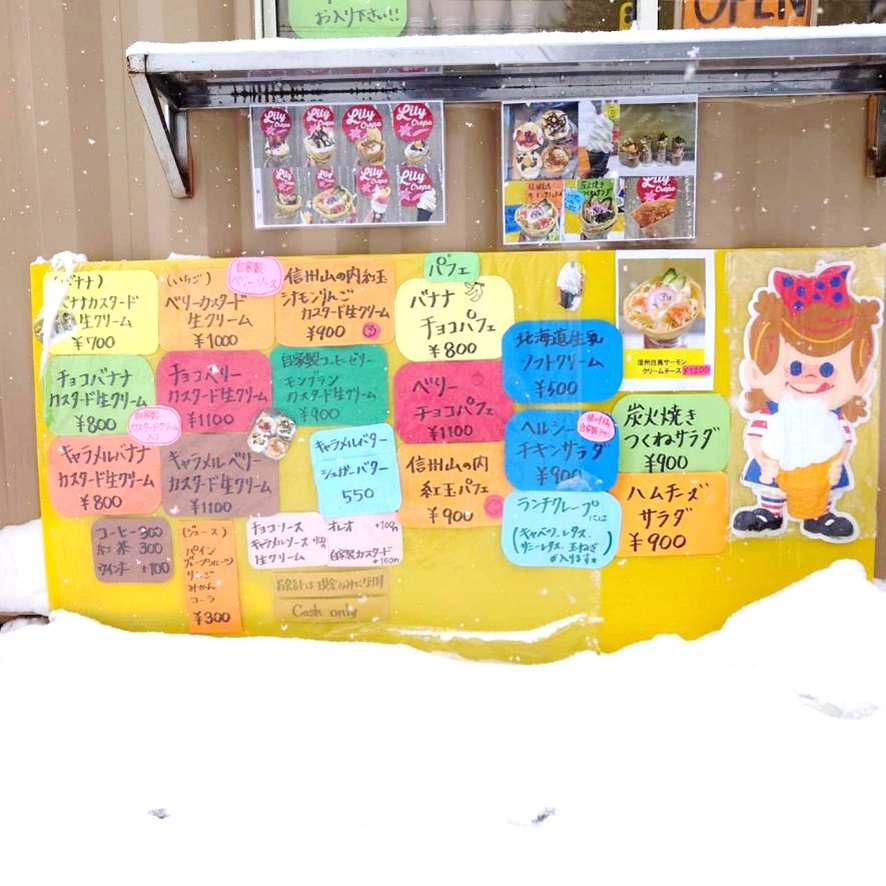 お入り下さい!!
OPEN
Lily Crepe
Lily Crepe
Lily Crepe
Lily Crepe
Lily
Lily
Lily
Lily Crepe
Lily
(バナナ)
バナナカスタード
生クリーム
¥700
(いちご)
ベリーカスタード
生クリーム
¥1000
自家製
ベリーソース
信州山の内紅玉
シナモンりんご
カスタード生クリーム
¥900
チョコバナナ
カスタード生クリーム
¥800
チョコベリー
カスタード生クリーム
¥1100
自家製コーヒーゼリー
モンブラン
カスタード生クリーム
¥900
自家製
カスタードクリーム
入り
キャラメルバナナ
カスタード生クリーム
¥800
キャラメルベリー
カスタード生クリーム
¥1100
キャラメルバター
シュガーバター
550
パフェ
バナナ
チョコパフェ
¥800
ベリー
チョコパフェ
¥1100
信州山の内
紅玉パフェ
¥900
北海道生乳
ソフトクリーム
¥500
ヘルシー
チキンサラダ
¥900
ランチクレープには
(キャベツ、レタス、
サニーレタス、玉ねぎ
が入ります)
信州白馬サーモン
クリームチーズ ¥1200
炭火焼き
つくねサラダ
¥900
ハムチーズ
サラダ
¥900
コーヒー 300
紅茶 300
ウインナー +100
(ジュース)
パイン
グレープフルーツ
りんご
みかん
コーラ
¥300
チョコソース
キャラメルソース
生クリーム
オレオ +100円
自家製カスタード
+150円
お会計は現金のみになります
Cash only